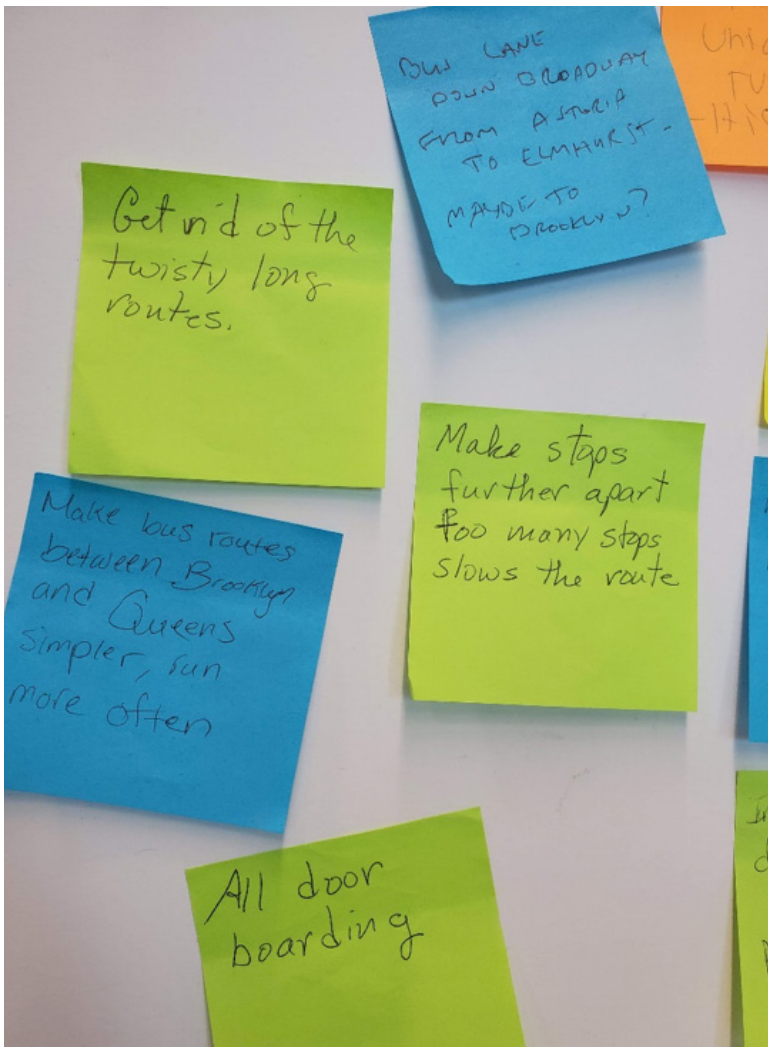 BUS LANE
DOWN BROADWAY
FROM ASTORIA
TO ELMHURST -
MAYBE TO
BROOKLYN?
Get rid of the
twisty long
routes.
Make stops
further apart
too many stops
slows the route
Make bus routes
between Brooklyn
and Queens
simpler, run
more often
All door
boarding